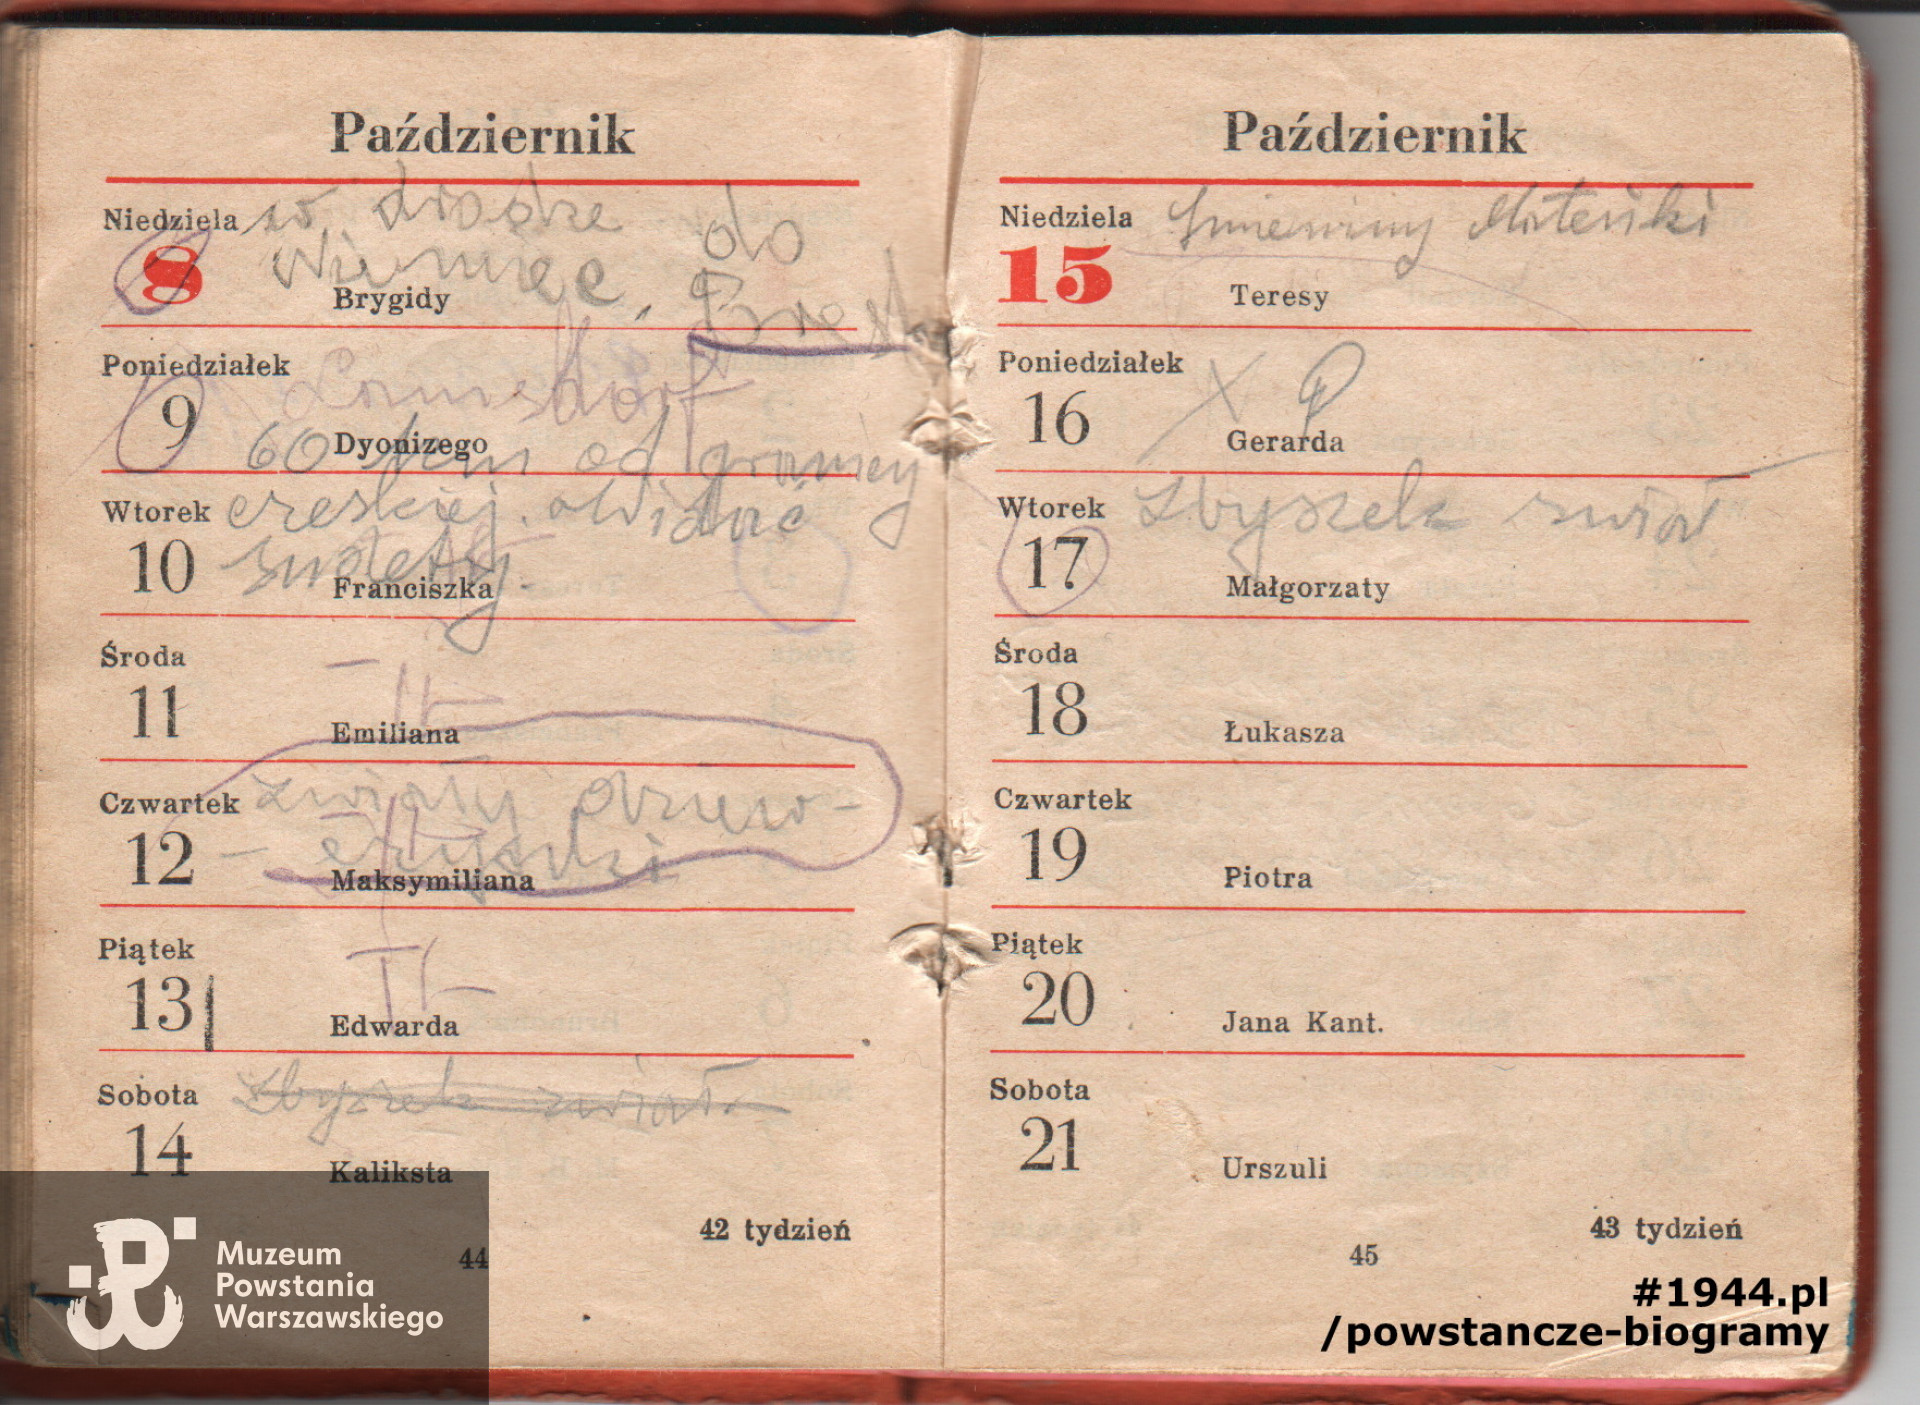 Październik
Niedziela w drodze do
8 Niemiec. Brest
Brygidy
Poniedziałek
9 Lamsdorf
Dyonizego
60 km od granicy
Wtorek czeskiej. Widać
10 Sudety.
Franciszka
Środa
11
Emiliana
Czwartek zwiały dziew-
12 - czynki
Maksymiliana
Piątek
13
Edwarda
Sobota Zbyszek zwiał.
14
Kaliksta
42 tydzień
44
Październik
Niedziela Imieniny Mateńki
15
Teresy
Poniedziałek X
16
Gerarda
Wtorek Zbyszek zwiał
17
Małgorzaty
Środa
18
Łukasza
Czwartek
19
Piotra
Piątek
20
Jana Kant.
Sobota
21
Urszuli
43 tydzień
45
Muzeum
Powstania
Warszawskiego
#1944.pl
/powstancze-biogramy